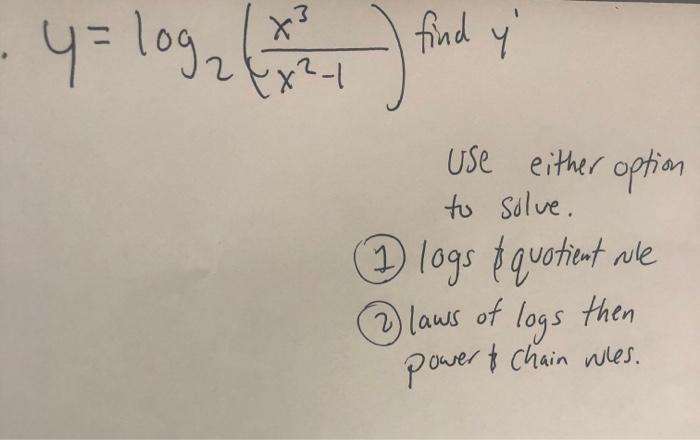 . y = log₂ (x³ / x²-1) find y'
USE either option
to solve.
① logs & quotient rule
② laws of logs then
power & chain rules.